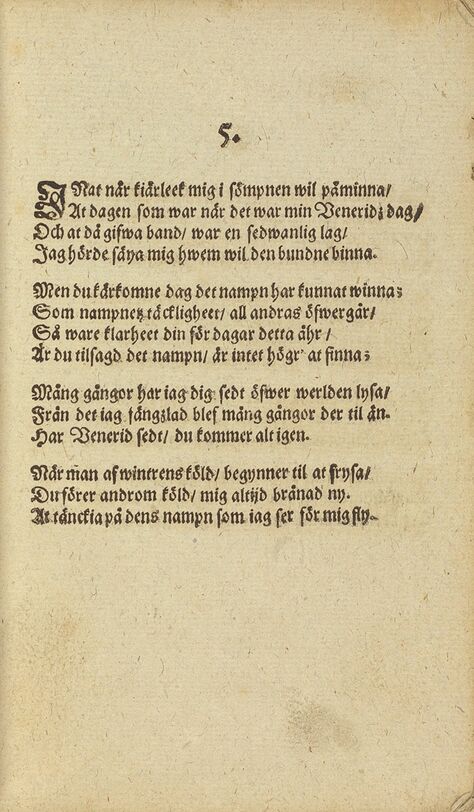 5.
I Nat når kiårleek mig i sömpnen wil påminna/
At dagen som war når det war min Venerid; dag/
Och at då gifwa band/ war en sedwanlig lag/
Jag hörde säya mig hwem wil den bundne binna.
Men du kårkomne dag det nampn har kunnat winna;
Som nampnetz tåckligheet/ all andras öfwergår/
Så ware klarheet din för dagar detta åhr/
År du tilsagd det nampn/ år intet högr' at finna;
Mång gångor har iag dig sedt öfwer werlden lysa/
Från det iag fångzlad blef mång gångor der til ån.
Har Venerid sedt/ du kommer alt igen.
Når man af wintrens köld/ begynner til at frysa/
Du förer androm köld/ mig altijd brånad ny.
At tånckia på dens nampn som iag ser för mig fly.